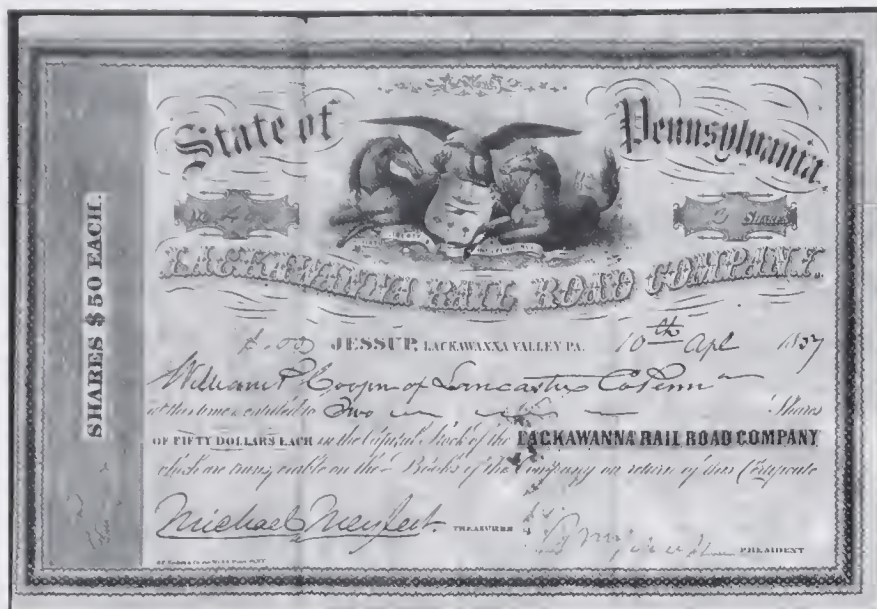 SHARES $50 EACH.
State of Pennsylvania.
Shares
LACKAWANNA RAIL ROAD COMPANY.
JESSUP, LACKAWANNA VALLEY PA. 10th Apl 1857
William P Cooper of Lancaster Co Penn
at this time is entitled to Two Shares
OF FIFTY DOLLARS EACH in the Capital Stock of the LACKAWANNA RAIL ROAD COMPANY
which are transferable on the Books of the Company on return of this Certificate
Michael Meylert TREASURER PRESIDENT